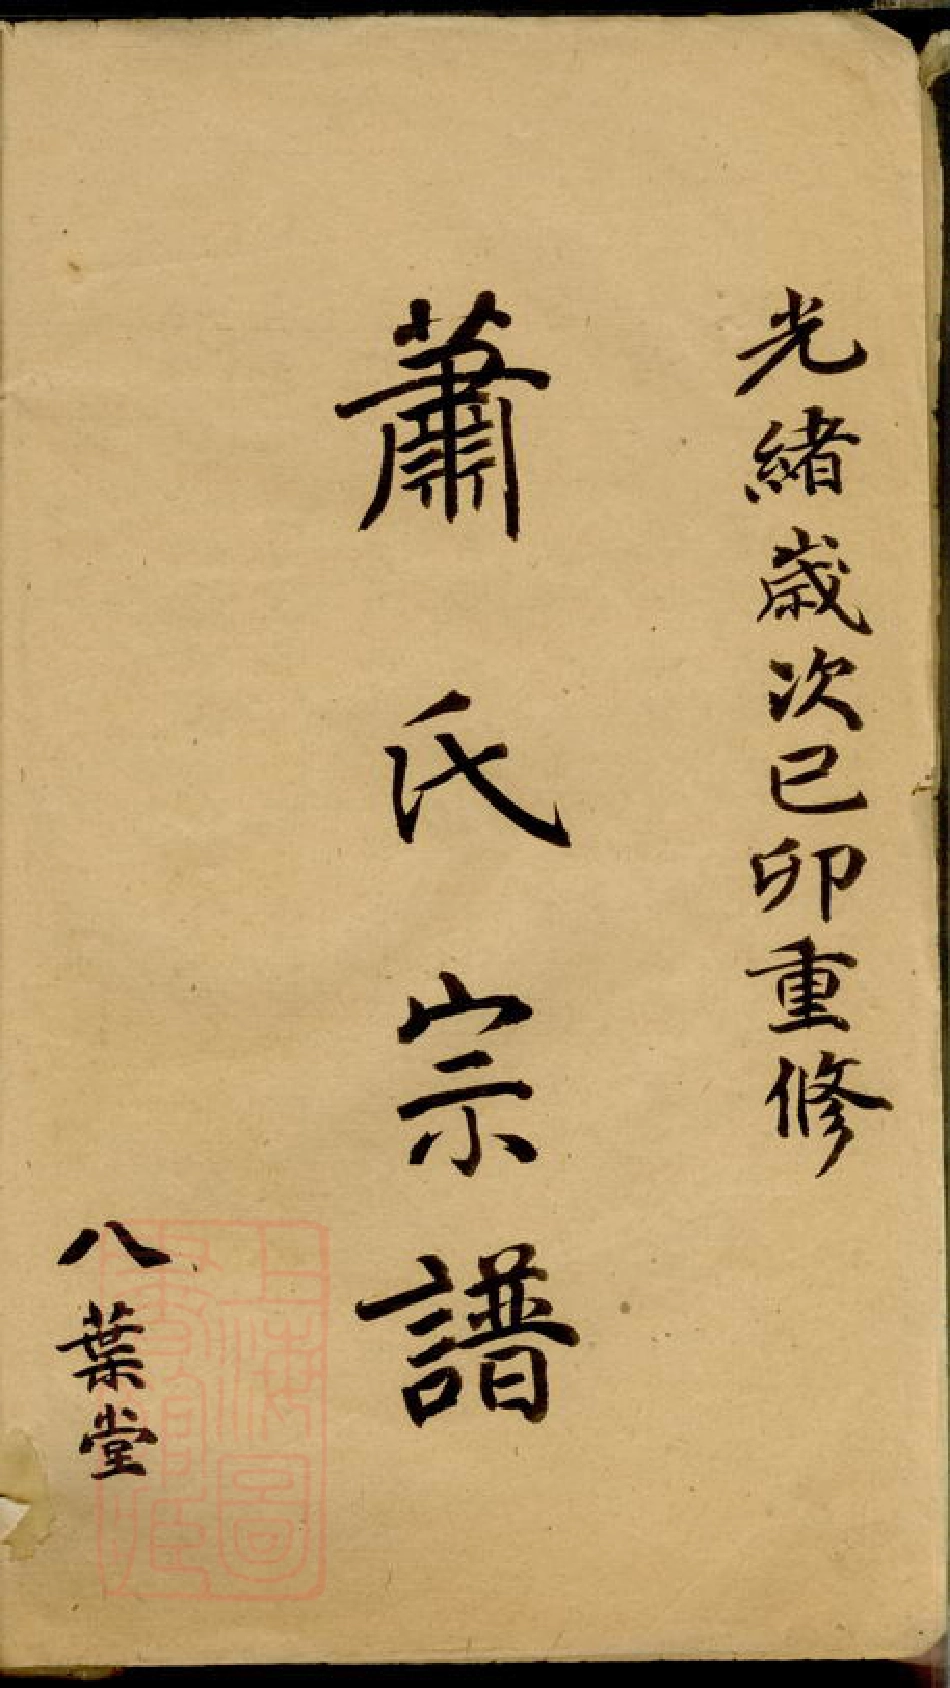 光緒歲次己卯重修
蕭氏宗譜
八葉堂
上海圖
書館藏